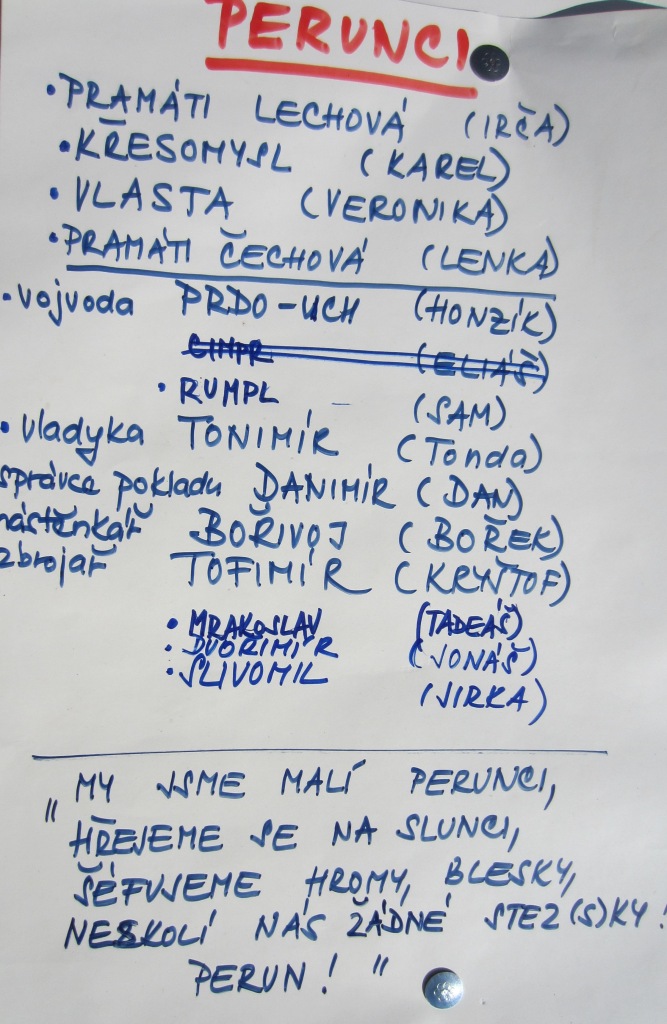 PERUNCI
• PRAMÁTI LECHOVÁ (IRČA)
• KŘESOMYSL (KAREL)
• VLASTA (VERONIKA)
• PRAMÁTI ČECHOVÁ (LENKA)
• vojvoda PRDO-UCH (HONZÍK)
CIMPR (ELIÁŠ)
• RUMPL – (SAM)
• vladyka TONIMÍR (Tonda)
správce pokladu DANIMÍR (DAN)
nástěnkář BOŘIVOJ (BOŘEK)
zbrojař TOFIMÍR (KRYŠTOF)
• MRAKOSLAV (TADEÁŠ)
• DVOŘIMÍR (JONÁŠ)
• SLIVOMIL (JIRKA)
„ MY JSME MALÍ PERUNCI,
HŘEJEME SE NA SLUNCI,
ŠÉFUJEME HROMY, BLESKY,
NESKOLÍ NÁS ŽÁDNÉ STEZ(S)KY!
PERUN! "